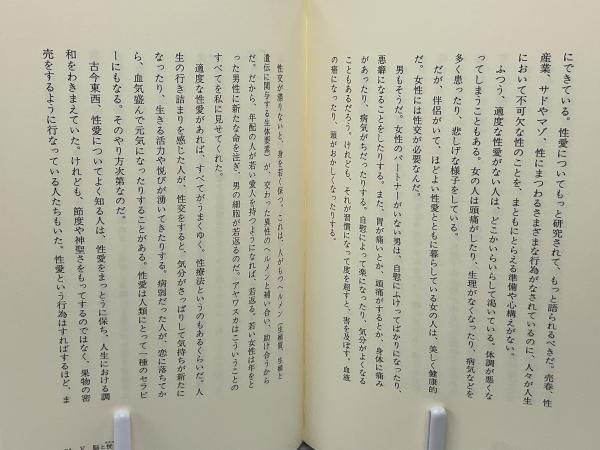 にできている。性愛についてもっと研究されて、もっと語られるべきだ。売春、性
産業、サドやマゾ、性にまつわるさまざまな行為がなされているのに、人々が人生
において不可欠な性のことを、まともにとらえる準備や心構えがない。
ふつう、適度な性愛がない人は、どこかいらいらして渇いている。体調が悪くな
ってしまうこともある。女の人は頭痛がしたり、生理がなくなったり、病気などを
多く患ったり、悲しげな様子をしている。
だが、伴侶がいて、ほどよい性愛とともに暮らしている女の人は、美しく健康的
だ。女性には性交が必要なんだ。
男もそうだ。女性のパートナーがいない男は、自慰にふけってばかりになったり、
悪癖になることをしたりする。また、胃が痛いとか、頭痛がするとか、身体に痛み
があったり、病気がちだったりする。自慰によって楽になったり、気分がよくなる
こともあるだろう。けれども、それが習慣になって度を超すと、害を及ぼす。血液
の癌になったり、頭がおかしくなったりする。
性交が濃りないと、身を若く保つ。これは、人がもつヘルメン
遺伝に関与する生体要素)が、交わった異性のヘルメンと補い合い、助け合うから
だ。だから、年配の人が若い愛人を持つようになれば、若返る。若い女性は年をと
った男性に新たな命を注ぎ、男の細胞が若返るのだ。アヤワスカはこういうことの
すべてを私に見せてくれた。
適度な性愛があれば、すべてがうまくゆく。性療法というのもあるくらいだ。人
生の行き詰まりを感じた人が、性交をすると、気分がさっぱりして気持ちが新たに
なったり、生きる活力や悦びが湧いてきたりする。病弱だった人が、恋に落ちてか
ら、血気盛んで元気になったりすることがある。性愛は人類にとって一種のセラピ
ーにもなる。そのやり方次第なのだ。
古今東西、性愛についてよく知る人は、性愛をまっとうに保ち、人生における調
和をわきまえていた。けれども、節度や神聖さをもってするのではなく、果物の密
売をするように行なっている人たちもいた。性愛という行為はすればするほど、ま